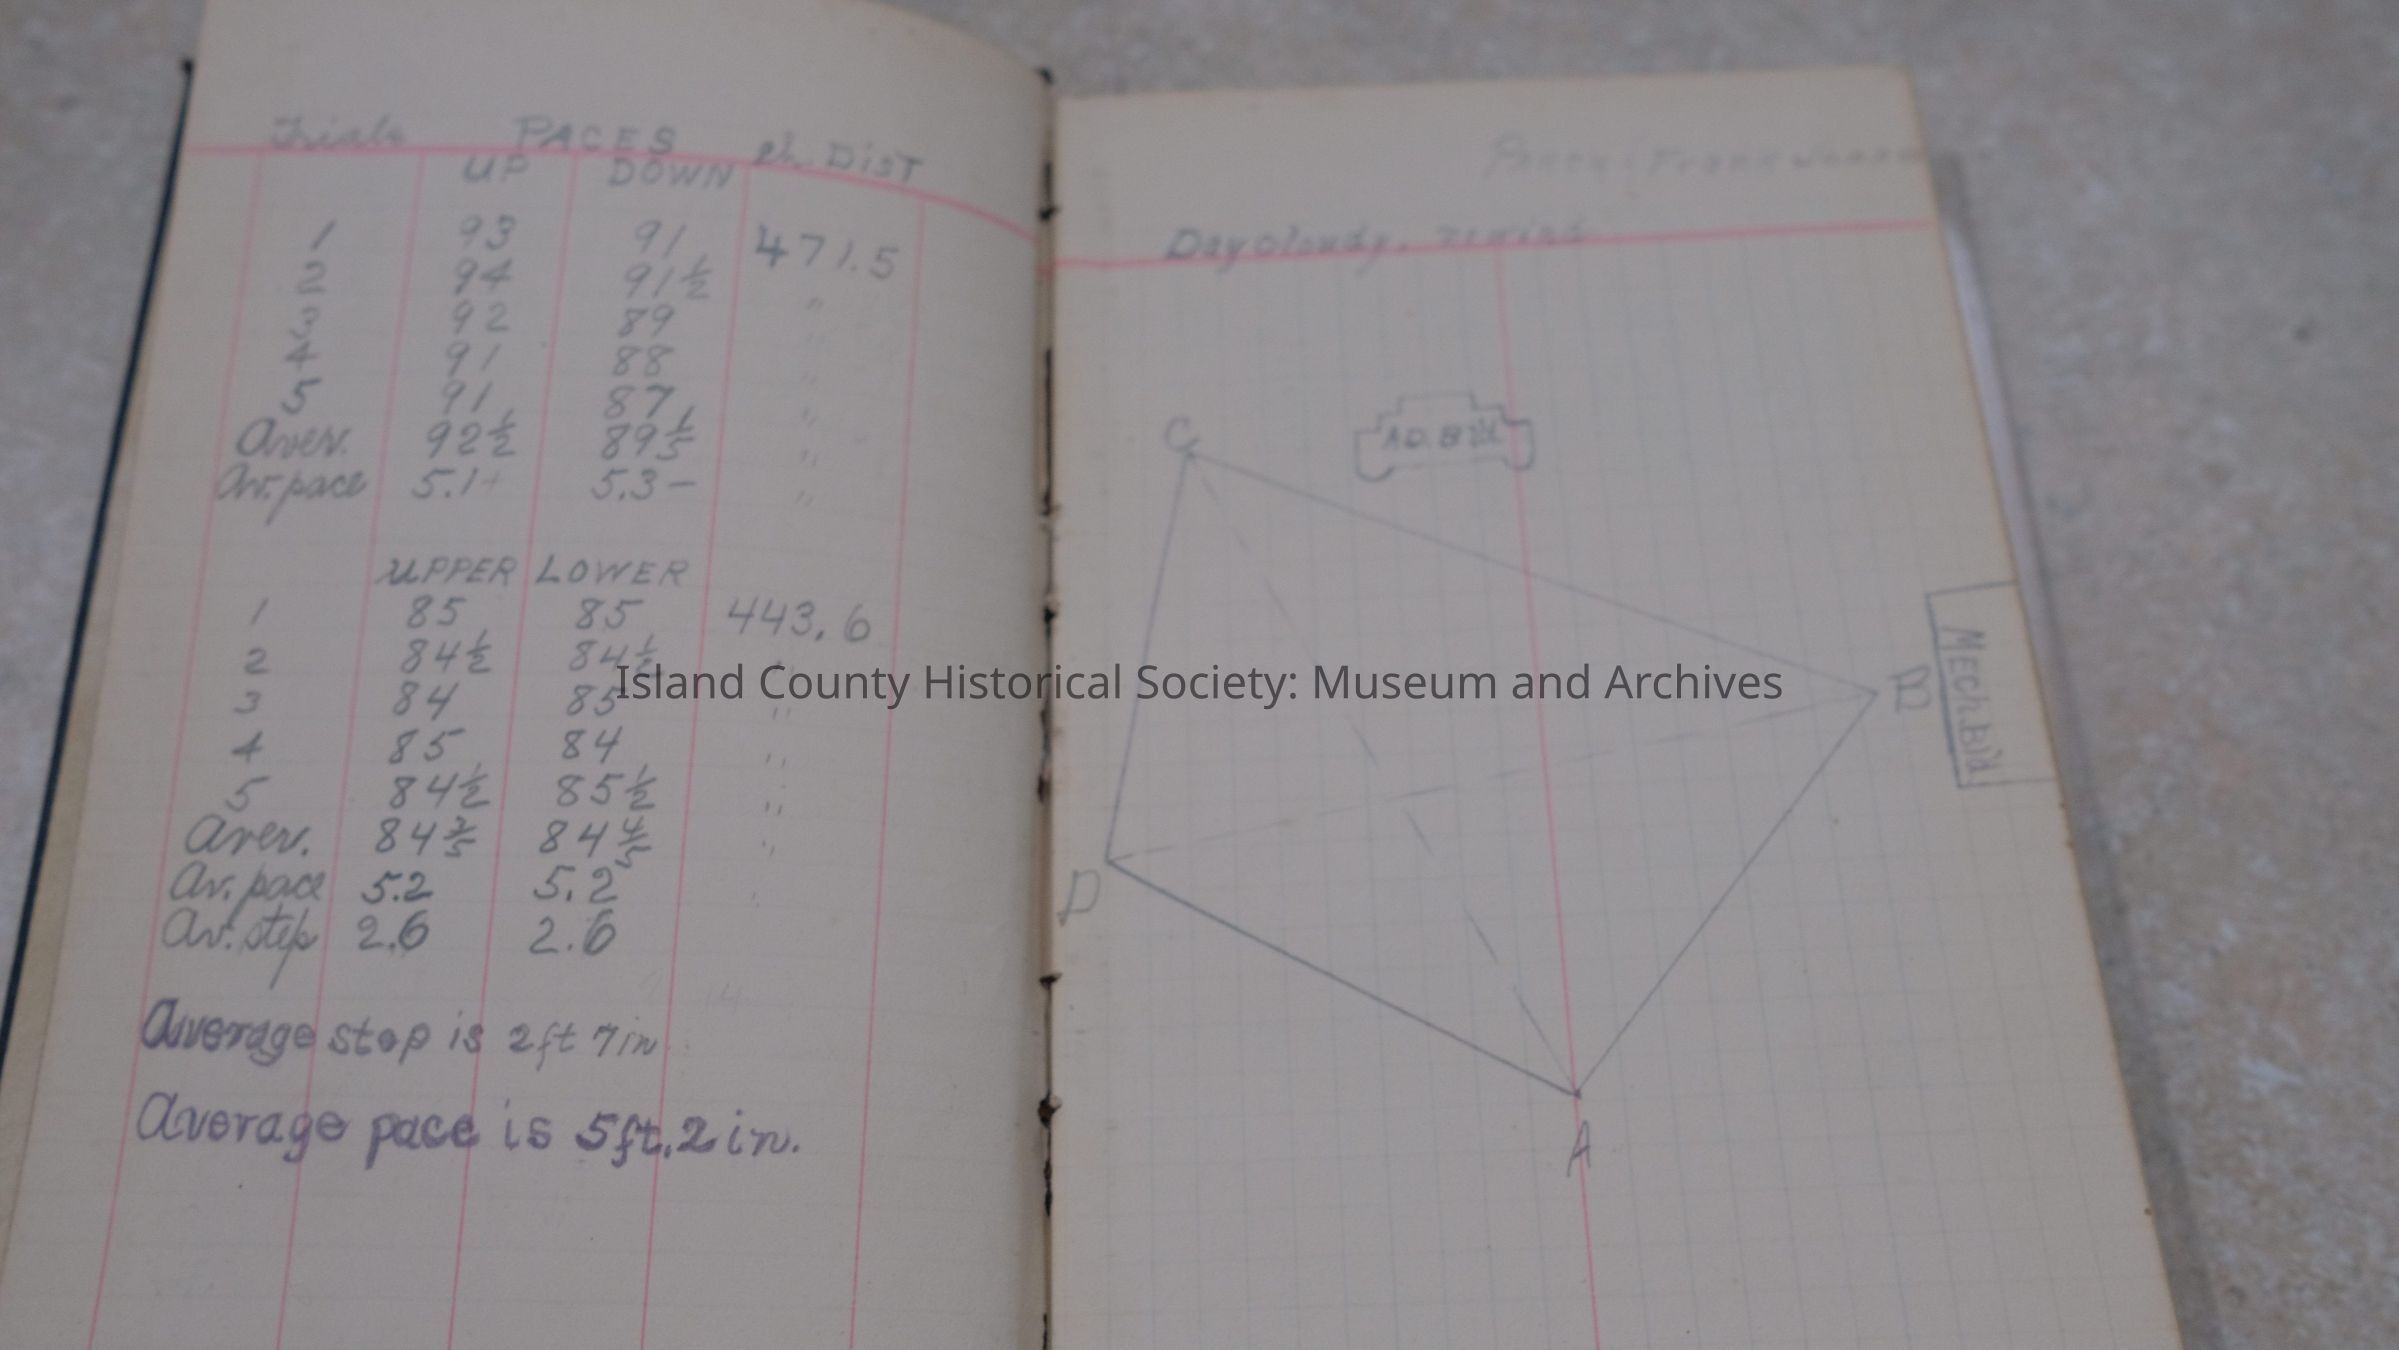 Trials PACES ch. DIST
UP DOWN
1 93 91 471.5
2 94 91½ "
3 92 89 "
4 91 88 "
5 91 87 "
Aver. 92½ 89⅕ "
Av. pace 5.1+ 5.3- "
UPPER LOWER
1 85 85 443.6
2 84½ 84½ "
3 84 85 "
4 85 84 "
5 84½ 85½ "
Aver. 84⅗ 84⅘ "
Av. pace 5.2 5.2 "
Av. step 2.6 2.6
Average step is 2ft 7in
Average pace is 5ft. 2in.
Day cloudy.
C
AD. Bld
B
Mech. Bld
D
A
Island County Historical Society: Museum and Archives